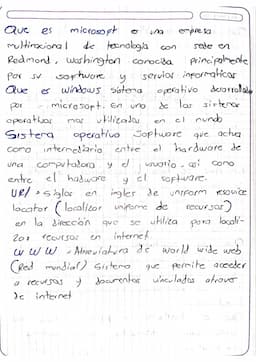 Que es microsoft e una empresa
multinacional de tecnología con sede en
Redmond, washington conocida principalmente
por su software y servios informaticos
Que es windows sistema operativo desarrollado
por - microsoft. en uno de los sistemas
operativos mas utilizados en el mundo
Sistema operativo Software que actua
como intermediario entre el hardware de
una computadora y el usuario. asi como
entre el hadware y el software.
URL > Siglas en ingles de uniform resource
locator (localizor uniforme de recursos)
en la dirección que se utiliza para locali-
zar recursos en internet
WWW - Abreviatura de world wide web
(Red mundial) sistema que permite acceder
a recursos y documentos vinculados atraves
de internet